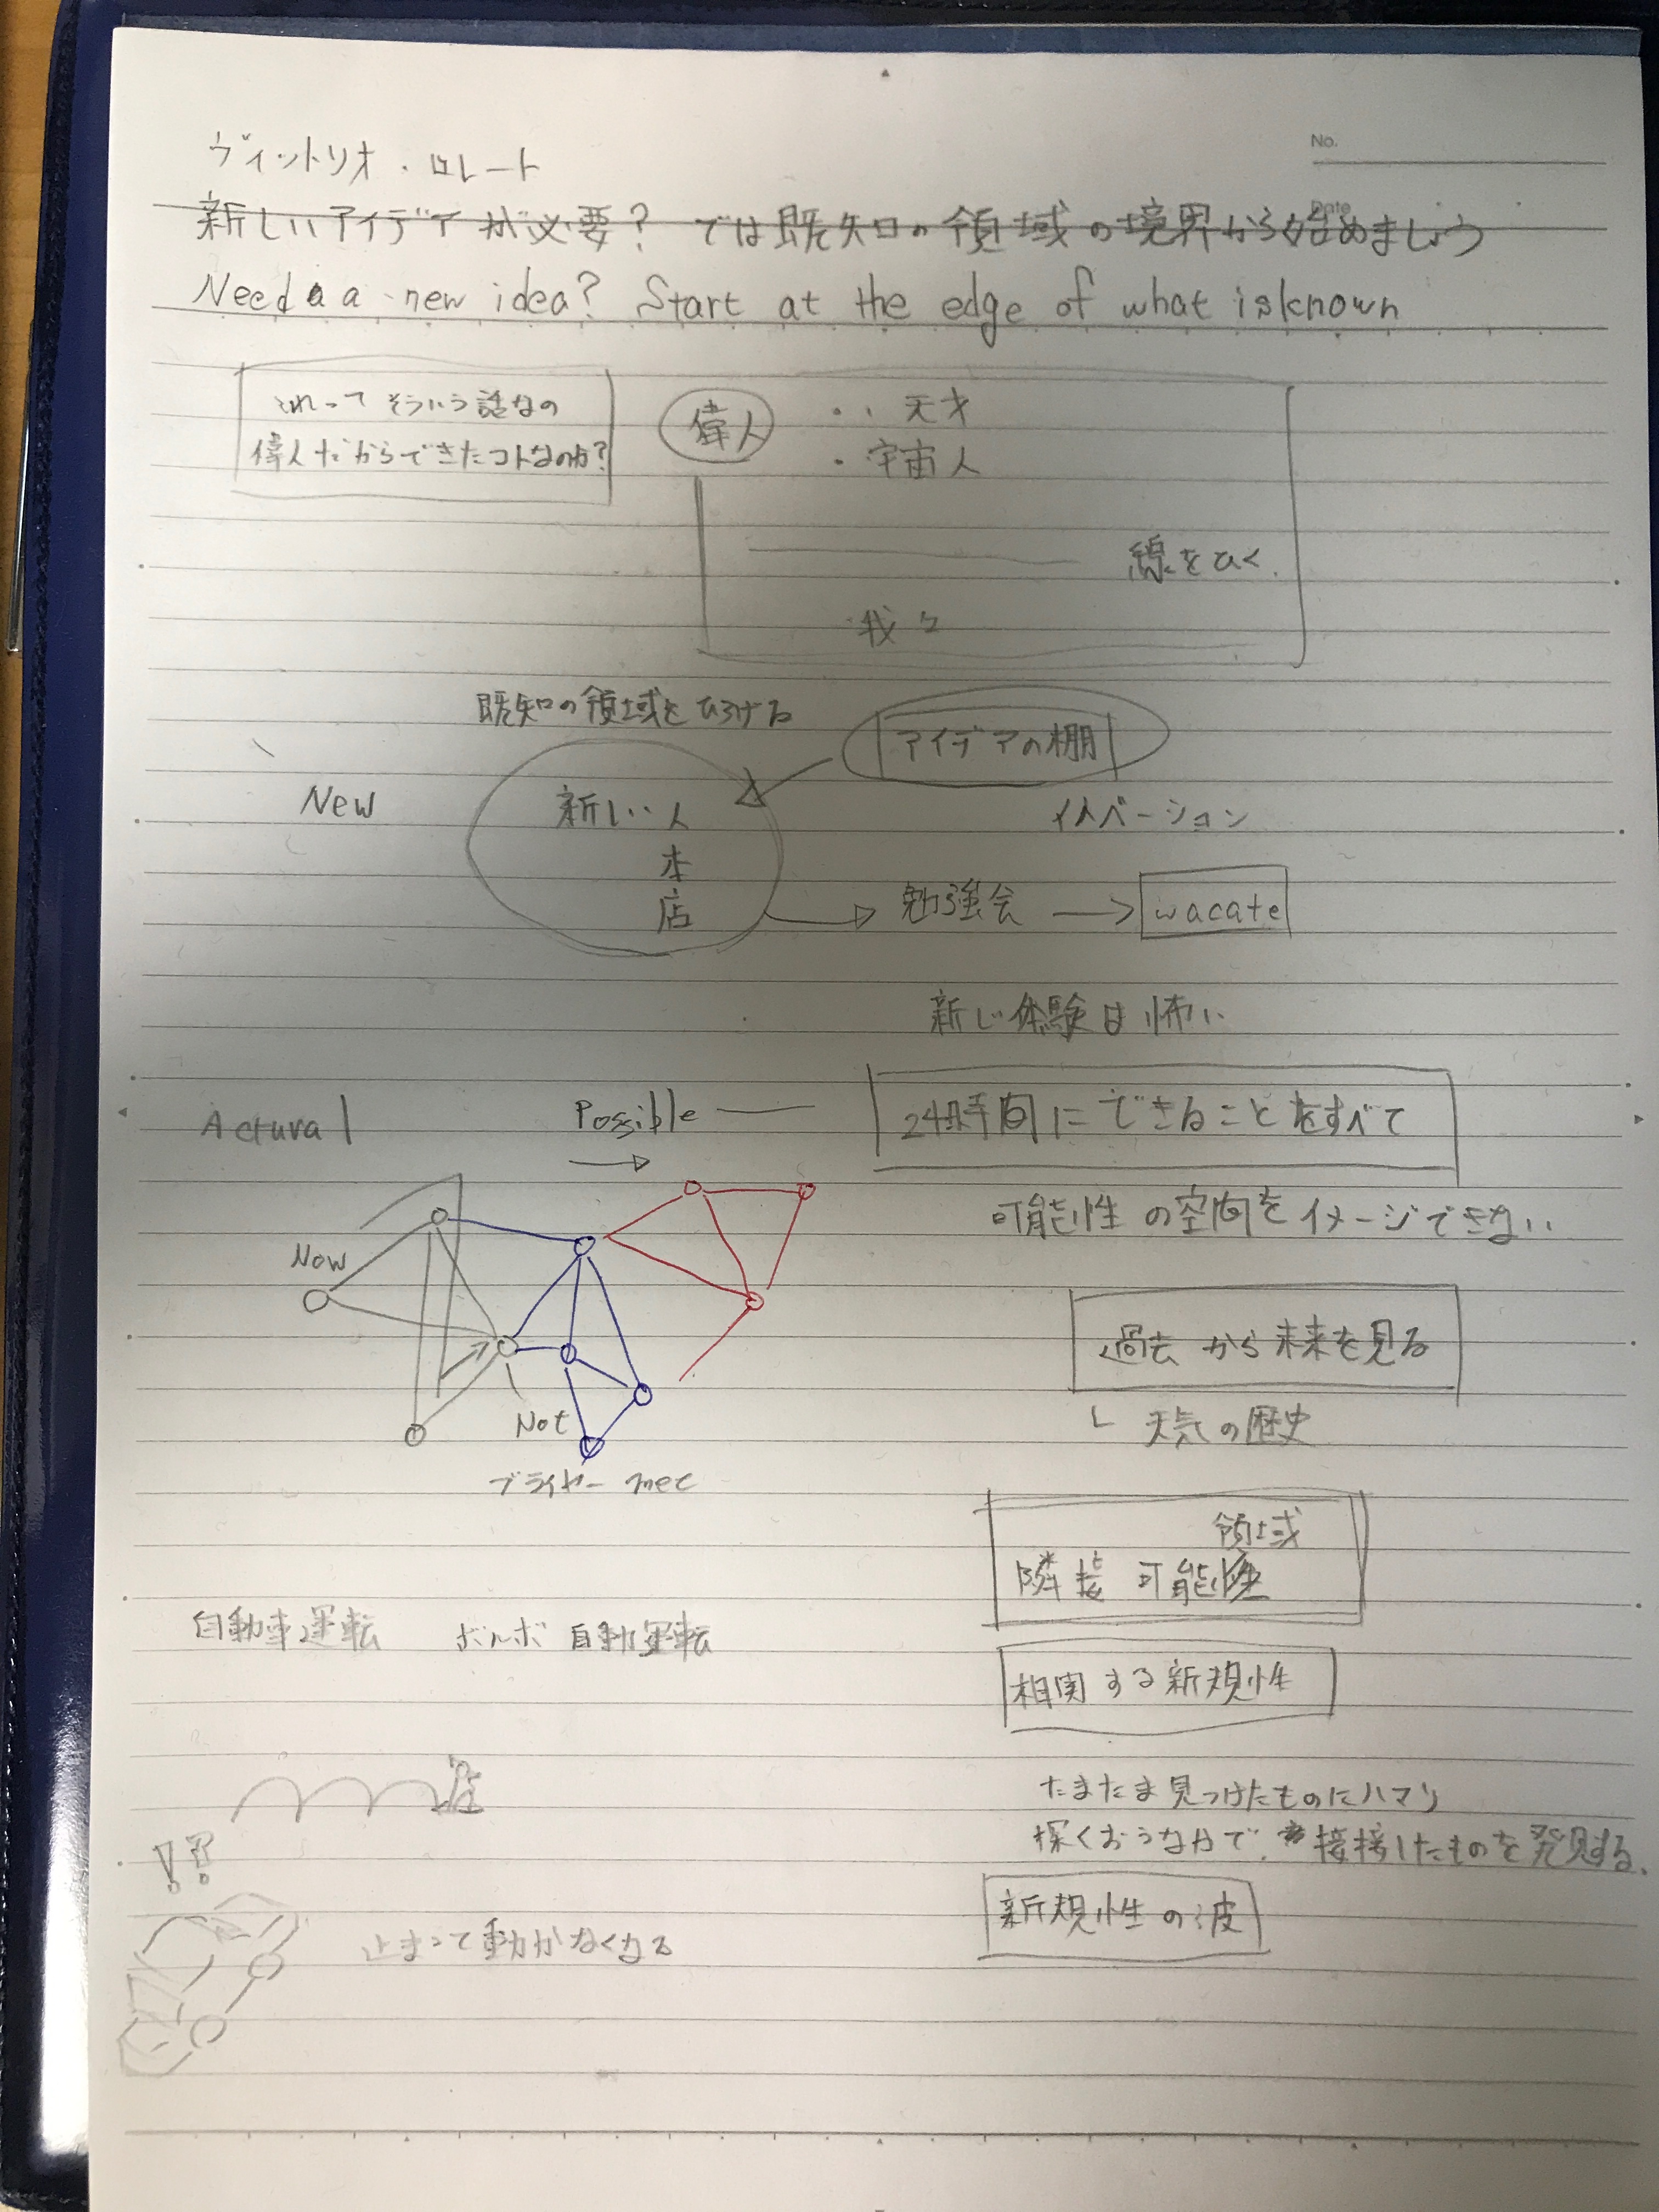 No.
Date
ヴィットリオ・ロレート
新しいアイデアが必要? では既知の領域の境界から始めましょう
Need a new idea? Start at the edge of what is known
これって そういう話なの
偉人だからできたコトなのか?
偉人
・天才
・宇宙人
線をひく.
我々
既知の領域をひろげる
アイデアの棚
New
新しい人
本
店
イノベーション
勉強会 → wacate
新しい体験は怖い
Actural
Possible
24時間にできることをすべて
可能性の空間をイメージできない
Now
過去から未来を見る
Not
天気の歴史
領域
隣接可能
自動車運転 ボルボ 自動運転
相関する新規性
たまたま見つけたものにハマり
したものを発見する.
!?
新規性の波
止まって動かなくなる